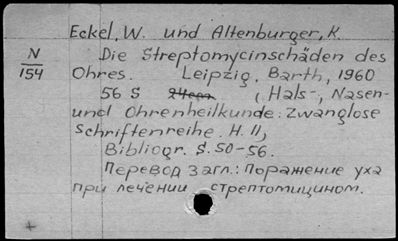 Eckel, W. und Altenburger, K.
N
154
Die Streptomycinschäden des
Ohres. Leipzig, Barth, 1960
56 S (Hals-, Nasen-
und Ohrenheilkunde: Zwanglose
Schriftenreihe. H. 11,
Bibliogr. S. 50-56.
Перевод загл.: Поражение уха
при лечении стрептомицином.
+